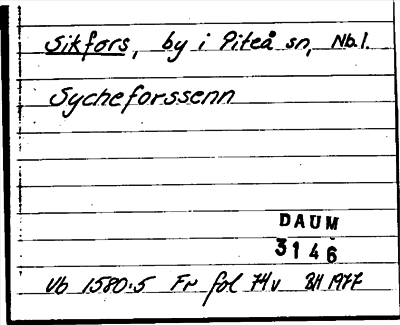 Sikfors, by i Piteå sn, Nb.l.
Sycheforssenn
DAUM
3146
Vb 1580:5 Fr fol 74v BH 1977